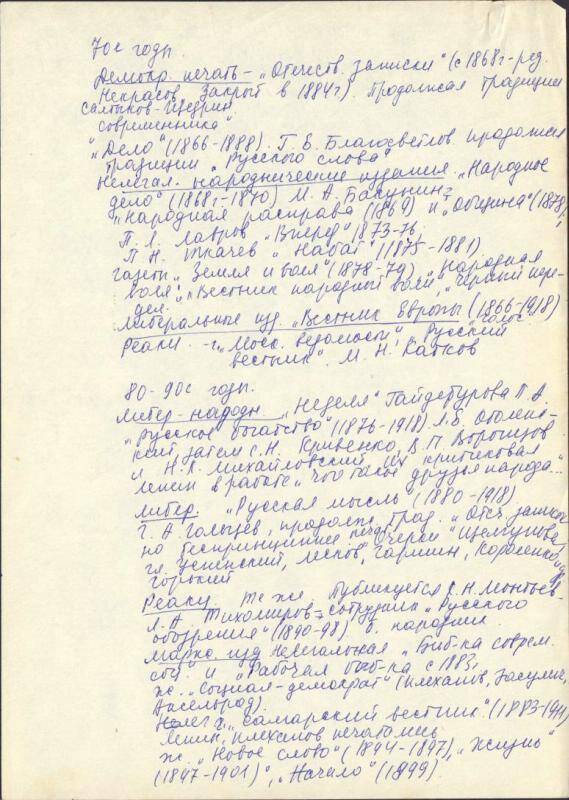 70е годы.
Демокр. печать – „Отечеств. записки" (с 1868г-ред.
Некрасов. Закрыт в 1884г). Продолжая традиции
Салтыков-Щедрин
„Современника"
„Дело" (1866-1888). Г. Е. Благосветлов продолжая
традиции „Русского слова"
Нелегал. народнические издания. „Народное
дело" (1868г-1870) М. А. Бакунин
„Народная расправа (1869) и „Община" (1878),
П. Л. Лавров „Вперед" 1873-76,
П. Н. Ткачев „Набат" (1875-1881)
газеты „Земля и воля" (1878-79), „Народная
воля", „Вестник народной воли", „Черный пере-
дел.
Либеральные изд. „Вестник Европы (1866-1918)
„Голос"
Реакц. -г. „Моск. ведомости", „Русский
вестник". М. Н. Катков
80-90е годы.
Либер-народн. „Неделя" Гайдебурова П. А.
„Русское богатство" (1876-1918) Л. Е. Оболенс-
кий, затем С. Н. Кривенко, В. П. Воронцов
и Н. К. Михайловский. Их критиковал
Ленин в работе „Что такое „друзья народа"...
Либер. „Русская мысль" (1880-1918)
Г. А. Гольцев, продолж. трад. „Отеч. записок"
но беспринципнее печат. „Очерки" Шелгунова,
Гл. Успенский, Лесков, Гаршин, Короленко,
Горький
Реакц. те же. Публикуется С. Н. Леонтьев
Л. А. Тихомиров – сотрудник „Русского
обозрения" (1890-98) б. народник
Маркс. изд. Нелегальная „Биб-ка соврем.
соц." и „Рабочая биб-ка с 1883,
ж. „Социал-демократ" (Плеханов, Засулич,
Аксельрод).
Нелег г. „Самарский вестник" (1883-1904)
Ленин, Плеханов печатались
ж. „Новое слово" (1894-1897), „Жизнь"
(1897-1901)", „Начало" (1899).